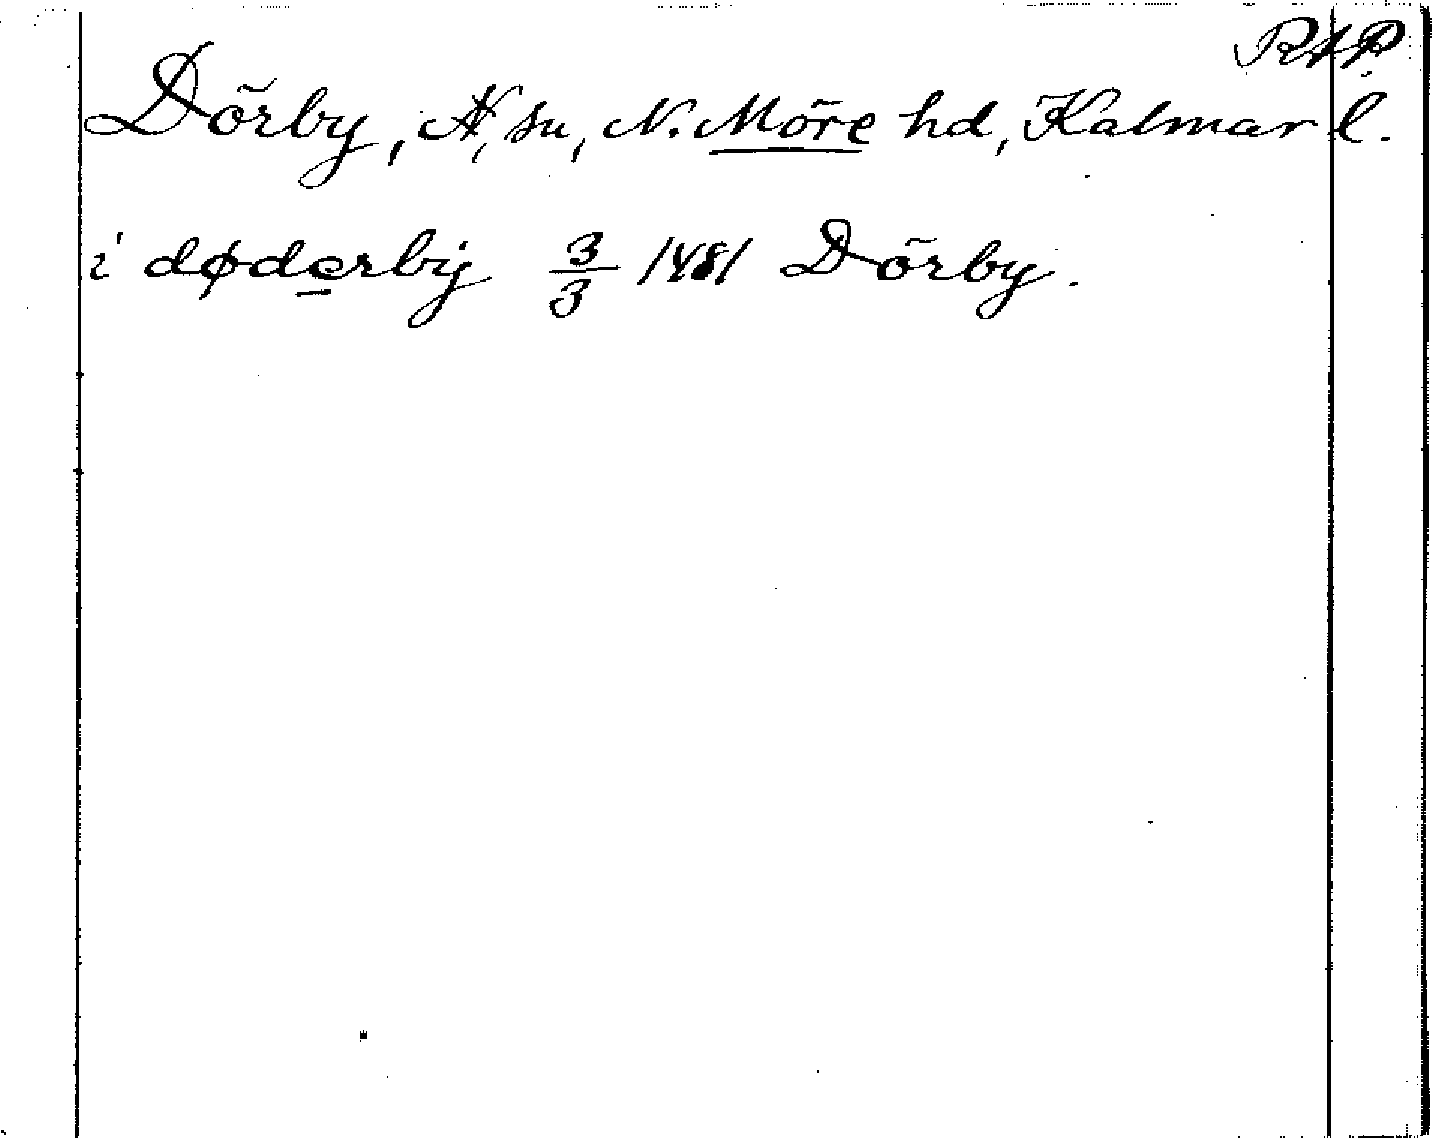 RAP.
Dörby, N, su, N. Möre hd, Kalmar l.
i døderbÿ 3/3 1481 Dörby.